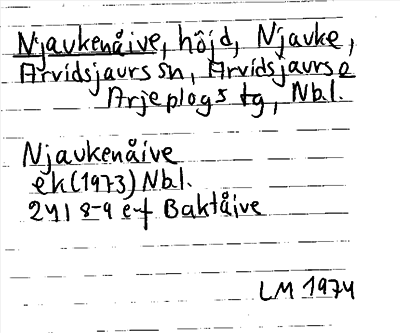 Njavkenåive, höjd, Njavke,
Arvidsjaurs sn, Arvidsjaurs o
Arjeplogs tg, Nbl.
Njavkenåive
ek (1973) Nbl.
24I 8-9 e-f Baktåive
LM 1974